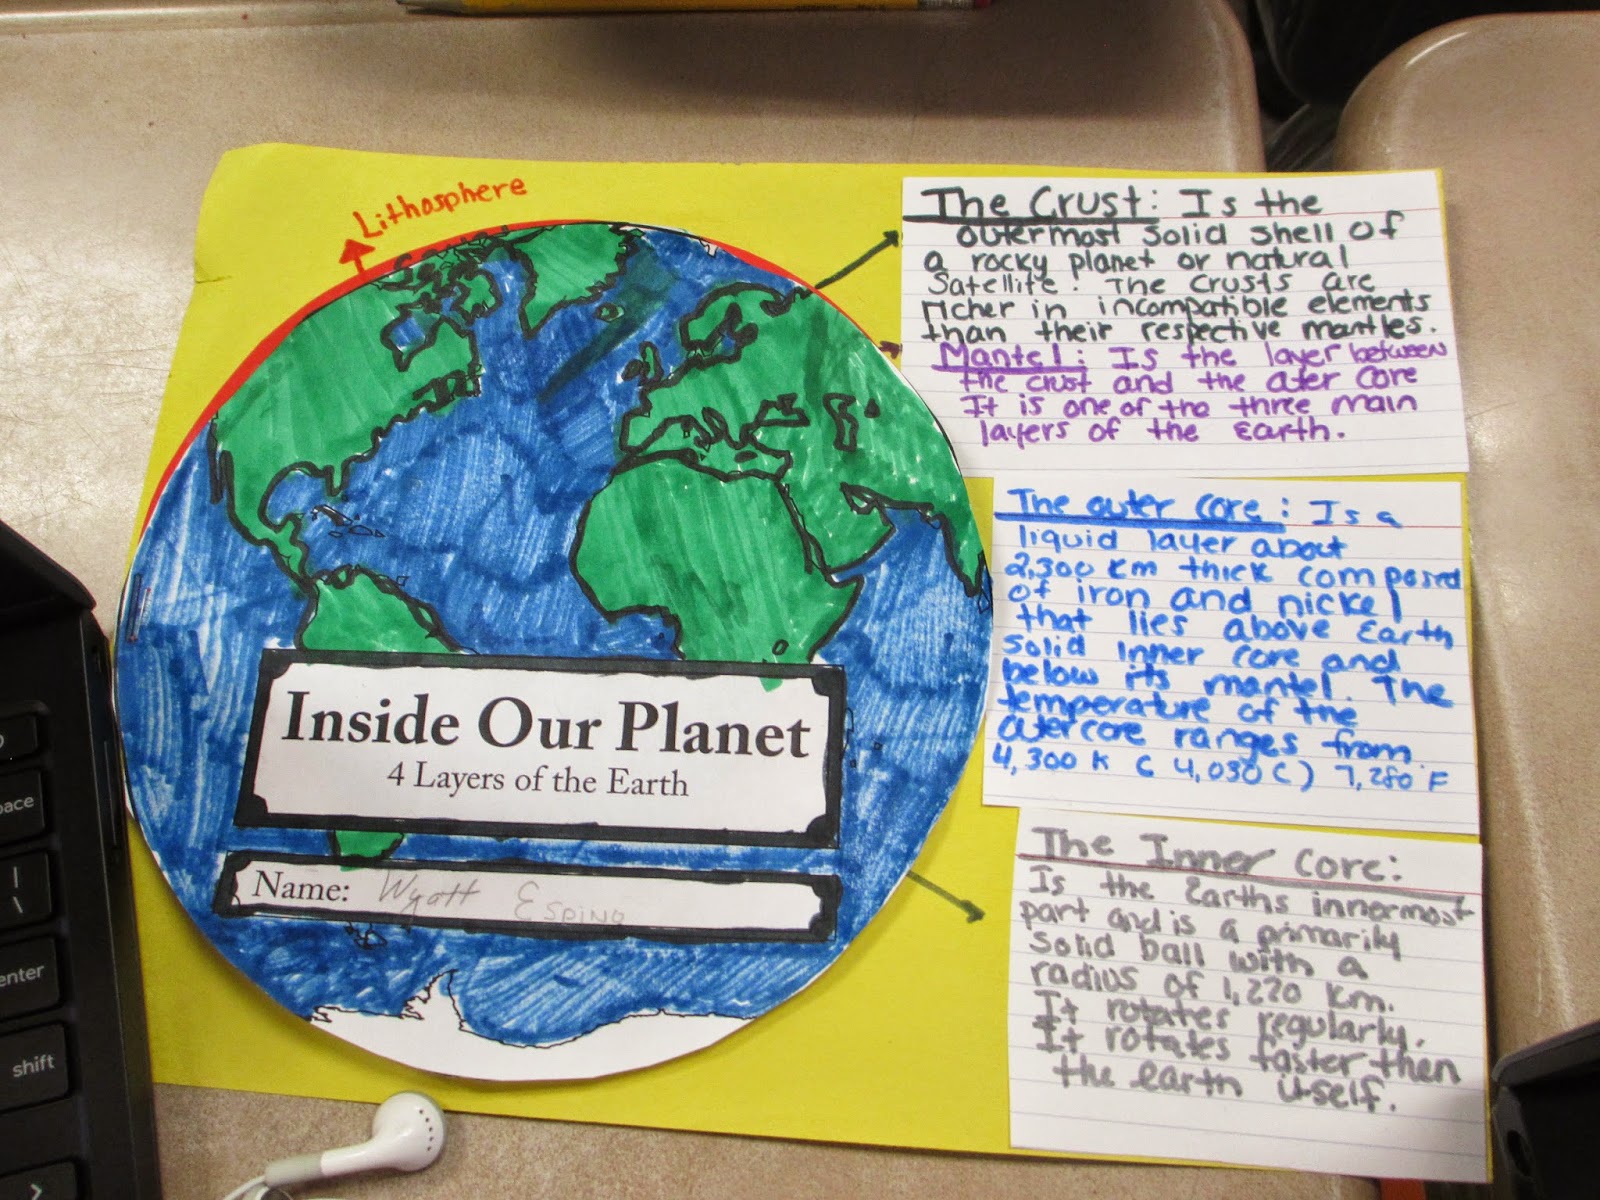 Lithosphere
Inside Our Planet
4 Layers of the Earth
Name: Wyatt Espino
The Crust: Is the
outermost solid shell of
a rocky planet or natural
Satellite. The crusts are
richer in incompatible elements
than their respective mantles.
Mantel: Is the layer between
the crust and the outer core
It is one of the three main
layers of the Earth.
The outer core: Is a
liquid layer about
2,300 km thick composed
of iron and nickel
that lies above Earth
solid inner core and
below its mantel. The
temperature of the
outercore ranges from
4,300 K (4,030 C) 7,280°F
The Inner Core:
Is the Earths innermost
part and is a primarily
solid ball with a
radius of 1,220 km.
It rotates regularly.
It rotates faster then
the earth itself.
enter
shift